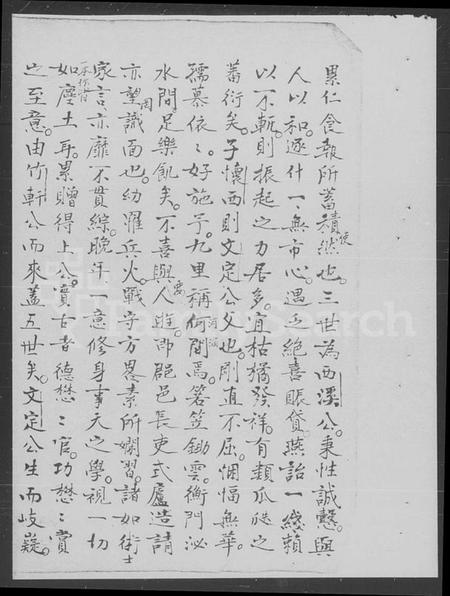 累仁食報所蓄積使然也。三世為西溪公。秉性誠慤。與
人以和。逐什一、無市心。遇乏絕喜賬貸。燕詒一綫賴
以不斬。則振起之力居多。宜枯橘發祥。有類瓜瓞之
蕃衍矣。子懷西則文定公父也。剛直不屈。悃愊無華。
孺慕依々。好施予。九里稱河間焉。箬笠鋤雲。衡門泌
水間。足樂飢矣。不喜與人遊。即郡邑長吏式廬造請
亦罔望識面也。幼罹兵火。戰守方畧素所嫺習。諸如術士
家言亦靡不貫綜。晚年一意修身事天之學。視一切
如塵土耳。累贈得上公。實古者德懋々官。功懋々賞
之至意。由竹軒公而來蓋五世矣。文定公生而岐嶷。